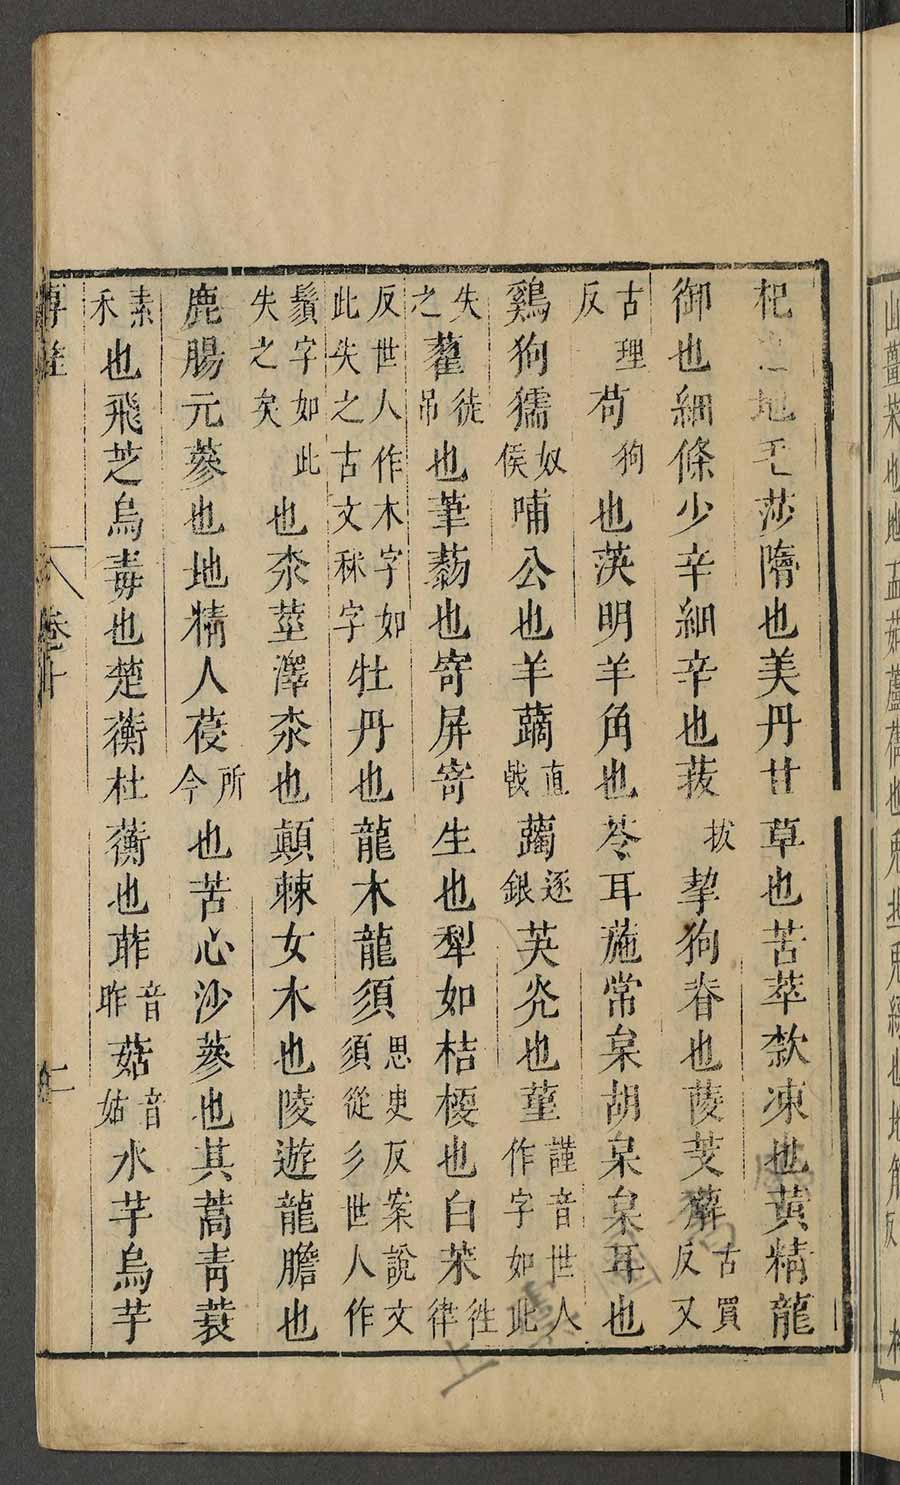 杞 地 莎隋也美丹甘草也苦萃款凍也黃精龍
御也細條少辛細辛也菝拔挈狗脊也䔖芰薢古買反又
古理反茍狗也渶明羊角也苓耳葹常枲胡枲枲耳也
雞狗獳奴侯哺公也羊䕞直戟䕽逐銀芺灮也堇謹音世人作字如此
失之藋徒吊也茟䕭也寄屏寄生也犁如桔梗也白茮律
反世人作木字如此失之古文秫字牡丹也龍木龍須思臾反案說文須從彡世人作
鬚字如此失之矣也茮莖澤茮也顛棘女木也陵遊龍膽也
鹿腸元蔘也地精人葠所今也苦心沙蔘也其蒿青蓑
素禾也飛芝烏毒也楚蘅杜蘅也葃音昨菇音姑水芋烏芋
卷十